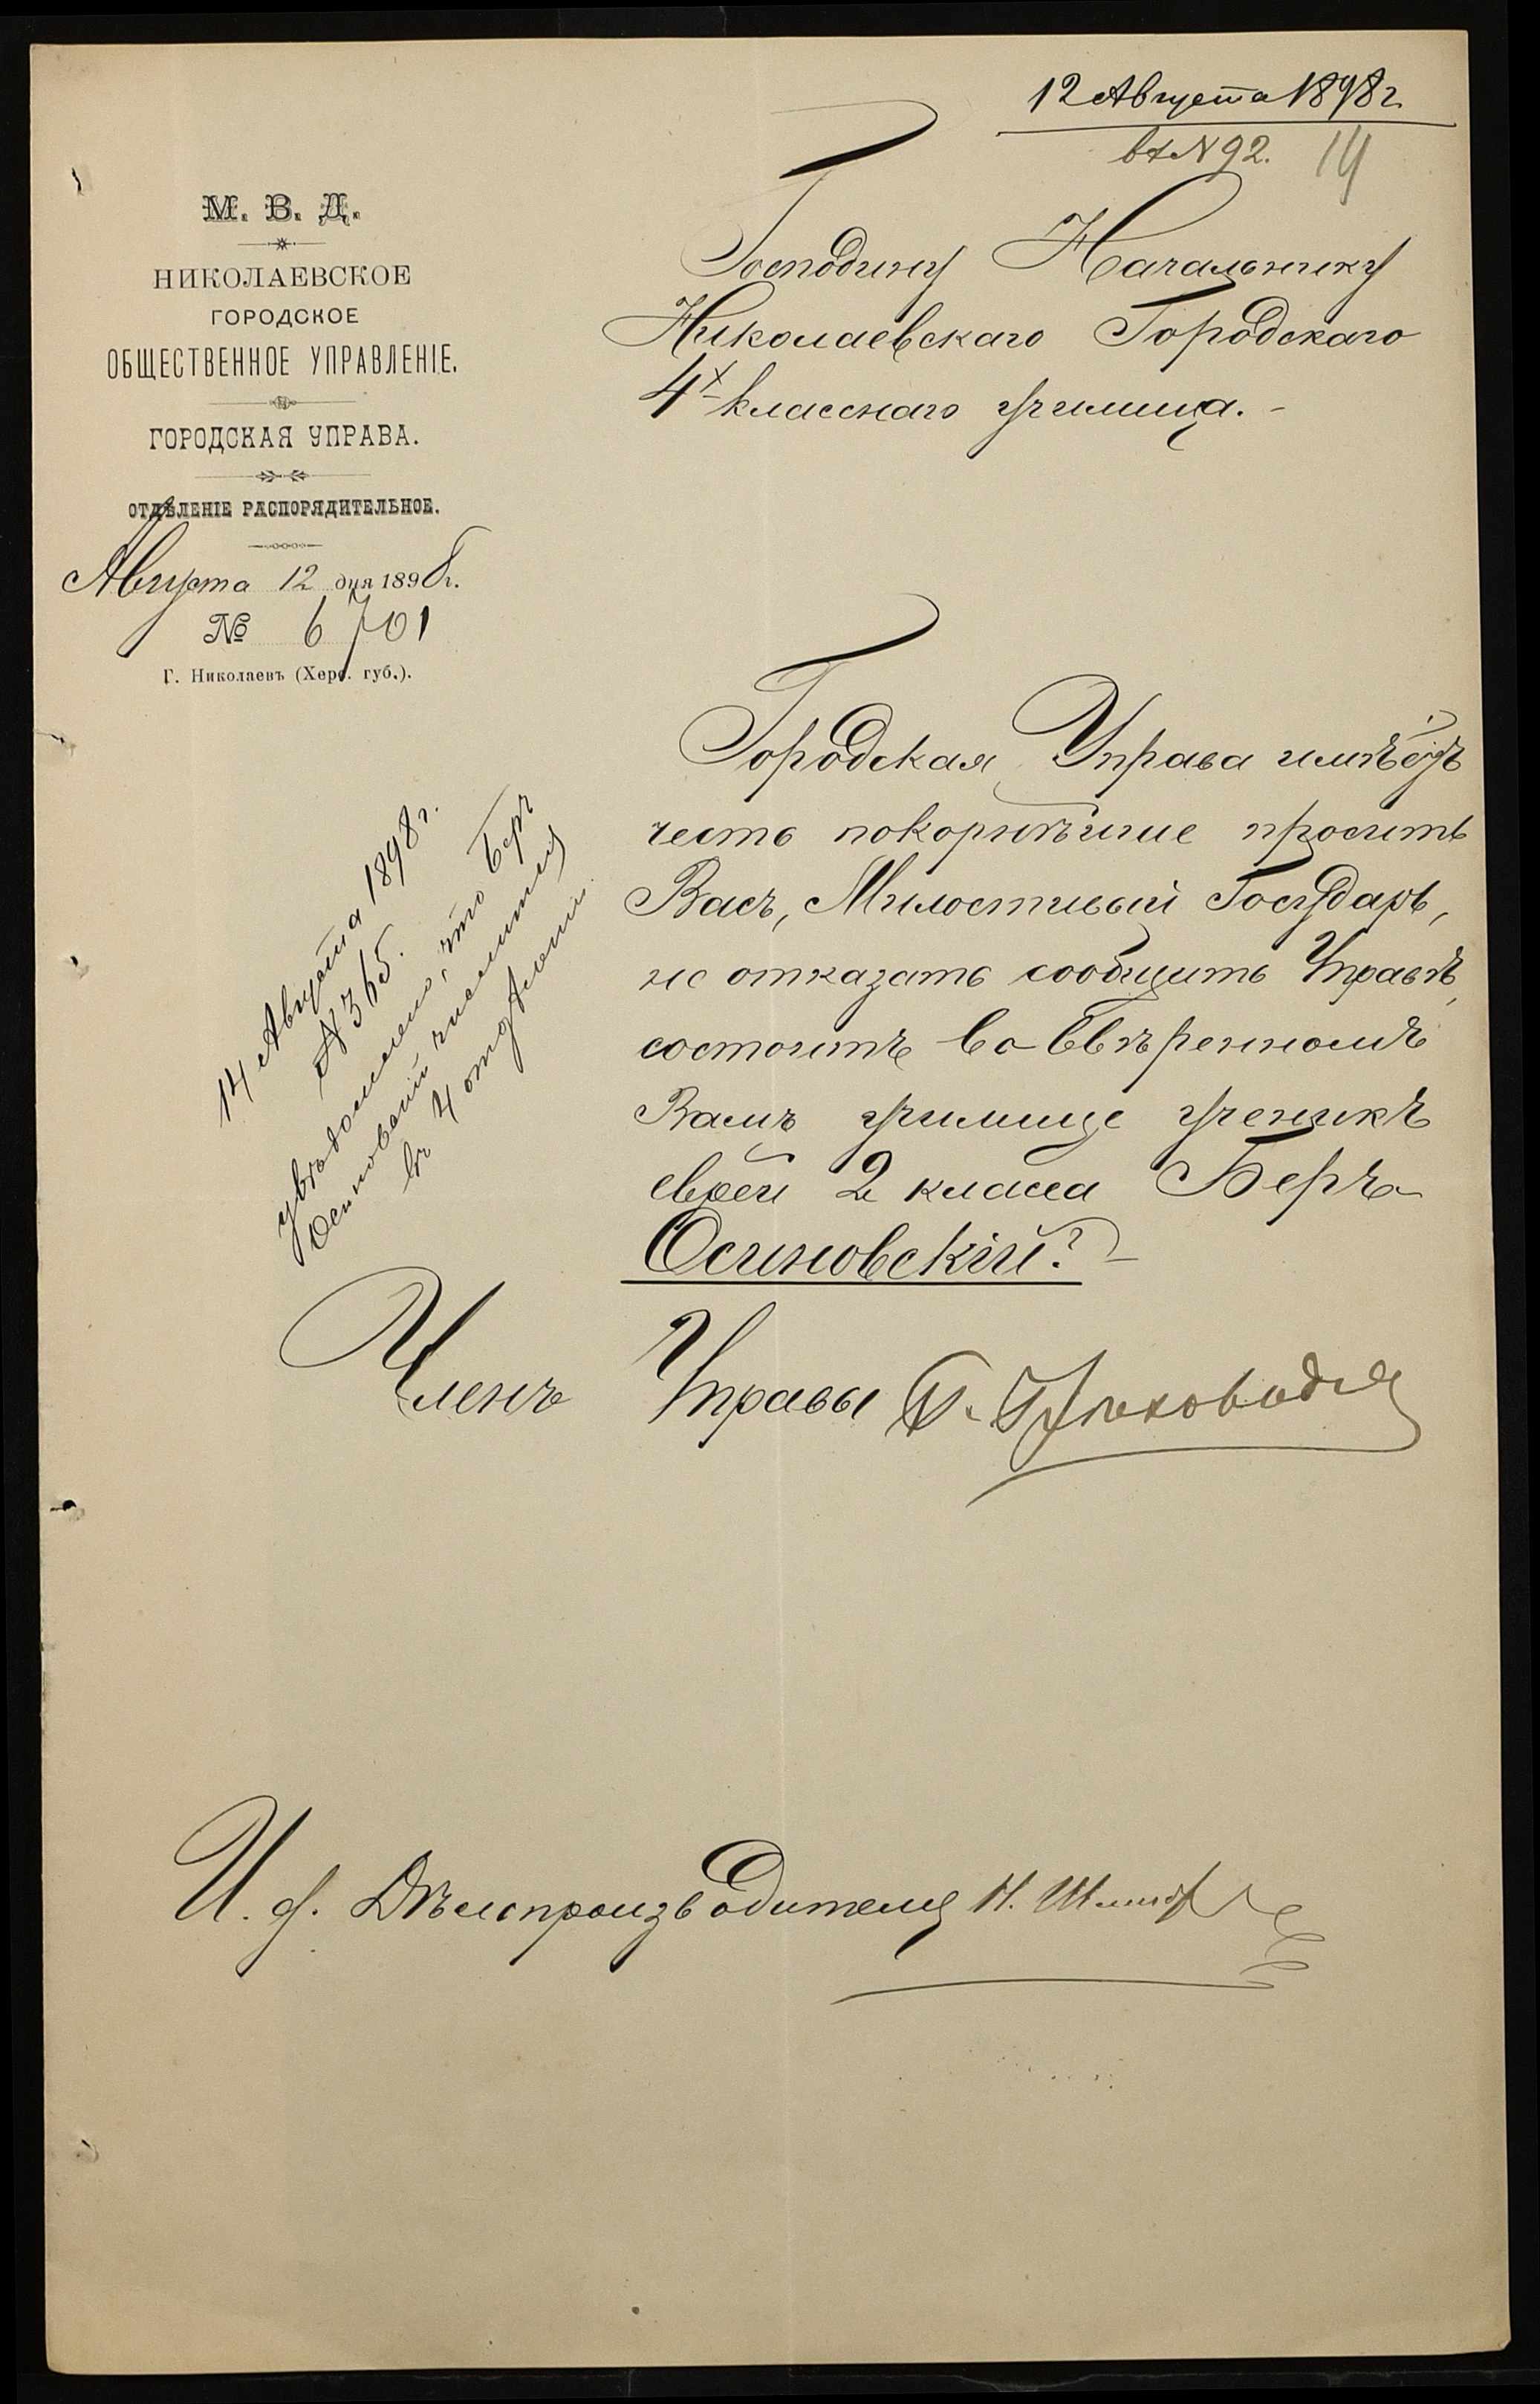 12 Августа 1898 г.
вх № 92. 14
М. В. Д.
НИКОЛАЕВСКОЕ
ГОРОДСКОЕ
ОБЩЕСТВЕННОЕ УПРАВЛЕНІЕ.
ГОРОДСКАЯ УПРАВА.
ОТДѢЛЕНІЕ РАСПОРЯДИТЕЛЬНОЕ.
Августа 12 дня 1898 г.
№ 6701
Г. Николаевъ (Херс. губ.).
Господину Начальнику
Николаевскаго Городскаго
4х классного училища. -
Городская Управа имѣетъ
честь покорнѣйше просить
Васъ, Милостивый Государь,
не отказать сообщить Управѣ,
состоитъ во ввѣренномъ
Вамъ училище ученикъ
2 класса Беръ
Осиновскій? -
14 Августа 1898 г.
№ 365.
увѣдомлено, что Беръ
Осиновскій числится
въ 4 отдѣленіи.
Членъ Управы
И. ф. Дѣлопроизводителя Н.